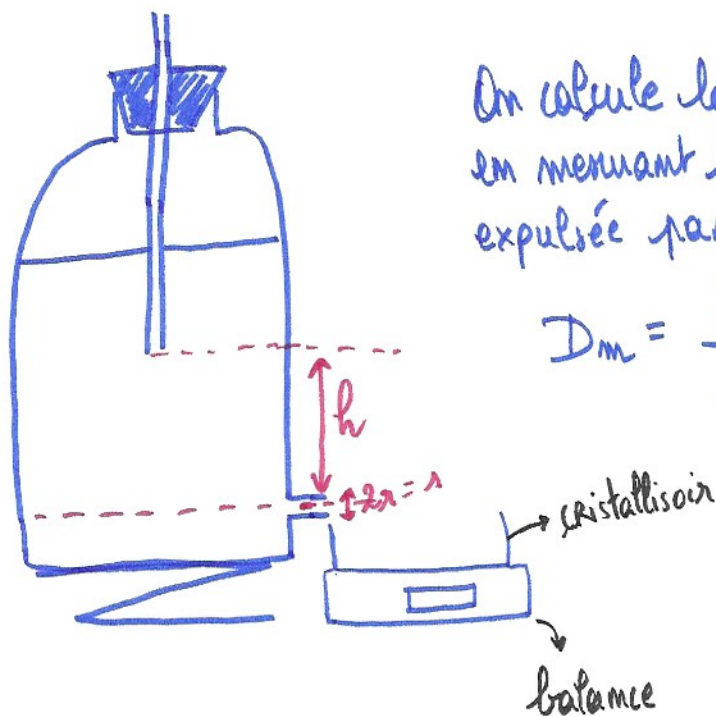 On calcule le
en mesurant
expulsée par
Dm =
h
2r = s
cristallisoir
balance